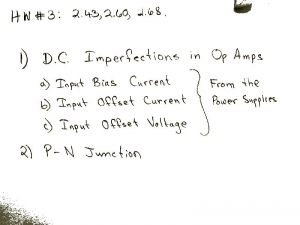 HW #3: 2.43, 2.60, 2.68.
1) D.C. Imperfections in Op Amps
a) Input Bias Current
b) Input Offset Current
c) Input Offset Voltage
From the
Power Supplies
2) P-N Junction